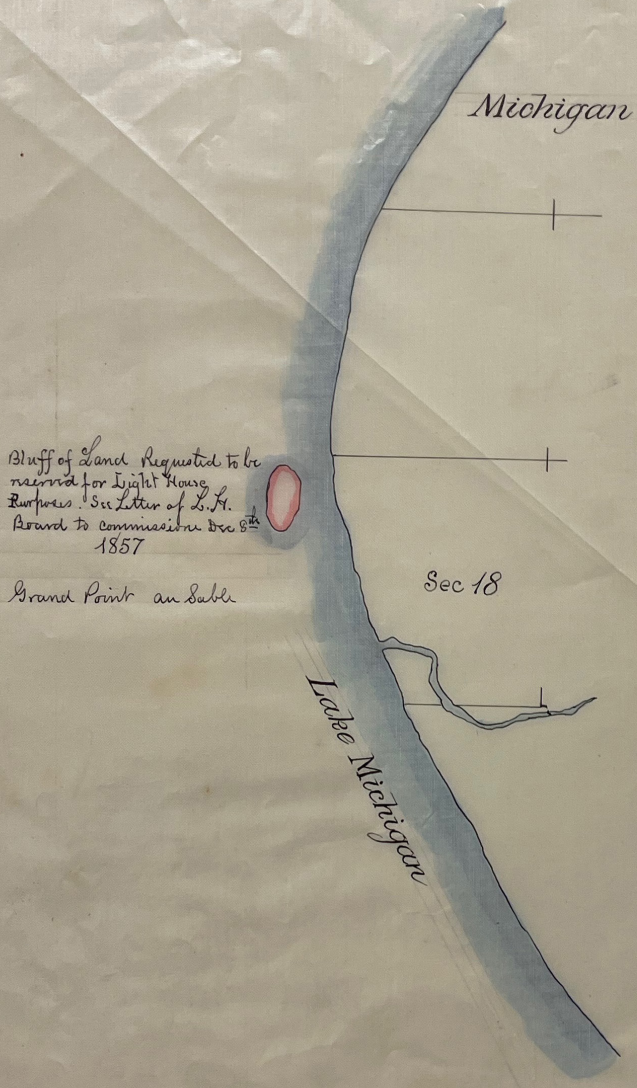 Michigan
Bluff of Land Requested to be
reserved for Light House
Purposes. See Letter of L.H.
Board to commissione Dec 8th
1857
Sec 18
Grand Point au Sable
Lake Michigan